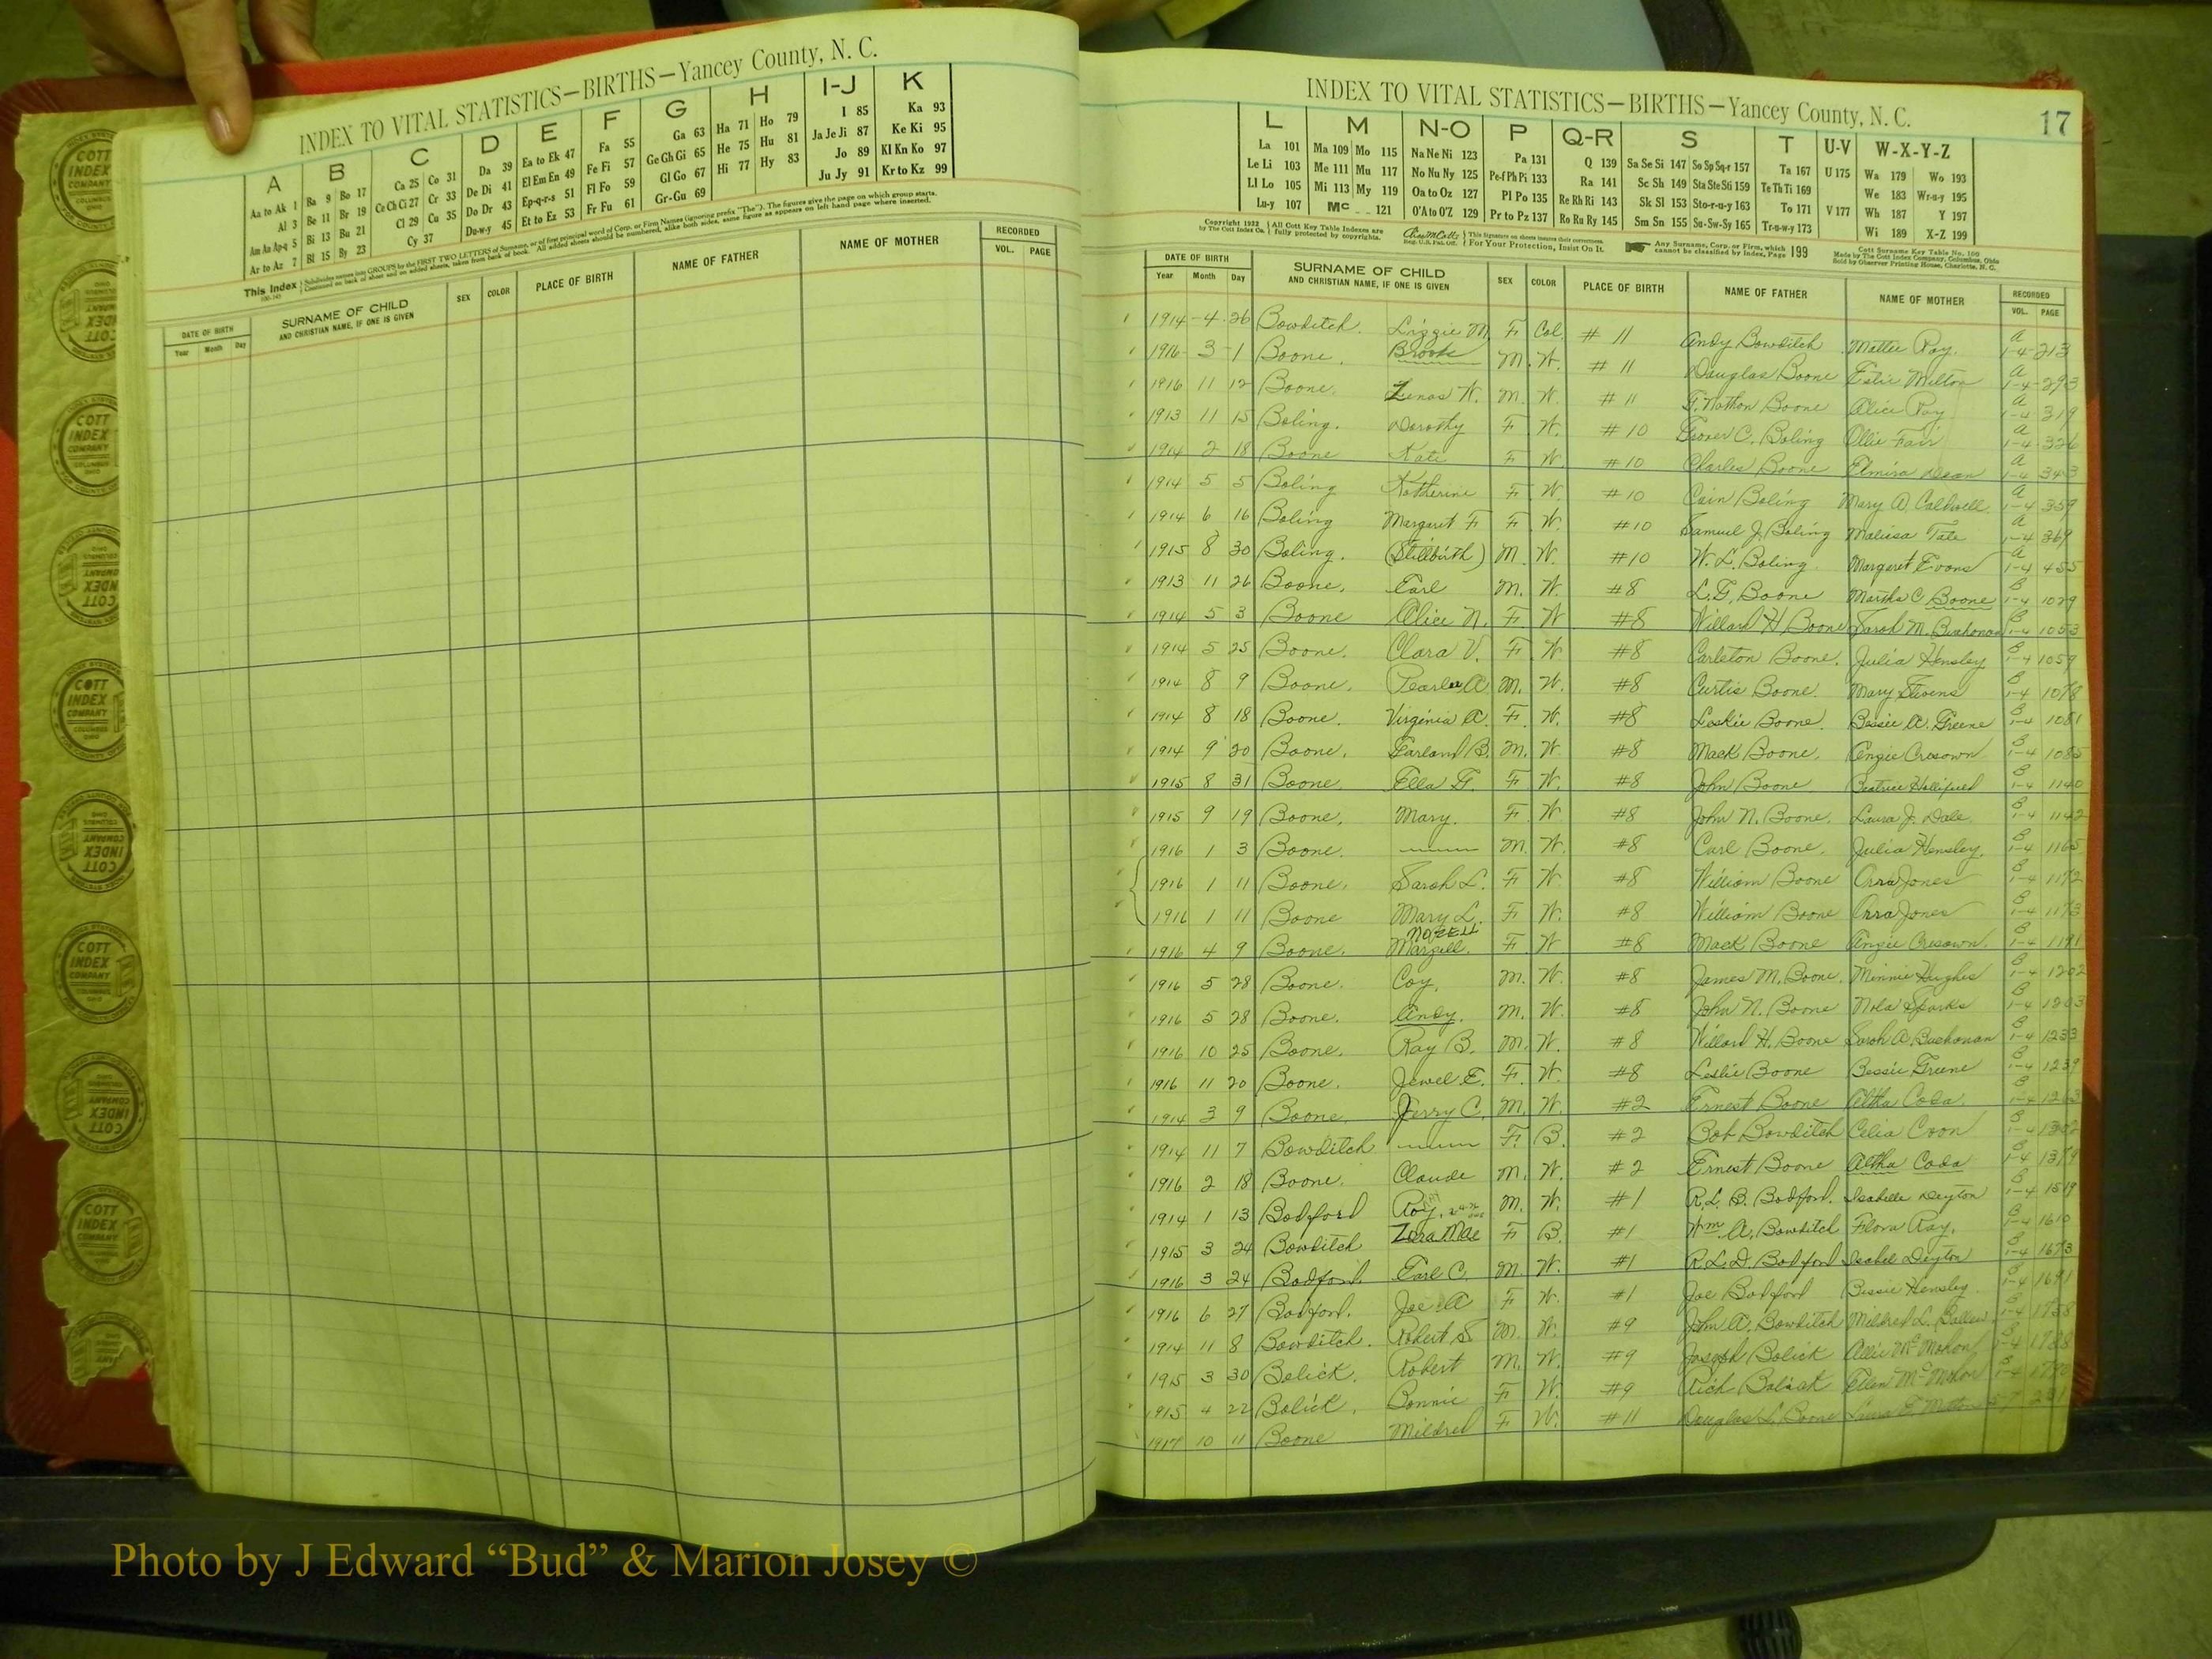 INDEX TO VITAL STATISTICS—BIRTHS—Yancey County, N. C.
A B C D E F G H I-J K
Aa to Ak 1 Ba 9 Bo 17 Ca 25 Co 31 Da 39 Ea to Ek 47 Fa 55 Ga 63 Ha 71 Ho 79 I 85 Ka 93
Al 3 Be 11 Br 19 Ce Ch Ci 27 Cr 33 De Di 41 El Em En 49 Fe Fi 57 Ge Gh Gi 65 He 75 Hu 81 Ja Je Ji 87 Ke Ki 95
Am An Ap-q 5 Bi 13 Bu 21 Cl 29 Cu 35 Do Dr 43 Ep-q-r-s 51 Fl Fo 59 Gl Go 67 Hi 77 Hy 83 Jo 89 Kl Kn Ko 97
Ar to Az 7 Bl 15 By 23 Cy 37 Du-w-y 45 Et to Ez 53 Fr Fu 61 Gr-Gu 69 Ju Jy 91 Kr to Kz 99
This Index
DATE OF BIRTH SURNAME OF CHILD SEX COLOR PLACE OF BIRTH NAME OF FATHER NAME OF MOTHER RECORDED
Year Month Day AND CHRISTIAN NAME, IF ONE IS GIVEN VOL. PAGE
COTT INDEX COMPANY
INDEX TO VITAL STATISTICS—BIRTHS—Yancey County, N. C. 17
L M N-O P Q-R S T U-V W-X-Y-Z
La 101 Ma 109 Mo 115 Na Ne Ni 123 Pa 131 Q 139 Sa Se Si 147 So Sp Sq-r 157 Ta 167 U 175 Wa 179 Wo 193
Le Li 103 Me 111 Mu 117 No Nu Ny 125 Pe-f Ph Pi 133 Ra 141 Sc Sh 149 Sta Ste Sti 159 Te Th Ti 169 We 183 Wr-u-y 195
Ll Lo 105 Mi 113 My 119 Oa to Oz 127 Pl Po 135 Re Rh Ri 143 Sk Sl 153 Sto-r-u-y 163 To 171 V 177 Wh 187 Y 197
Lu-y 107 Mc 121 O'A to O'Z 129 Pr to Pz 137 Ro Ru Ry 145 Sm Sn 155 Su-Sw-Sy 165 Tr-u-w-y 173 Wi 189 X-Z 199
Copyright 1922 by The Cott Index Co. All Cott Key Table Indexes are fully protected by copyrights. For Your Protection, Insist On It. Any Surname, Corp. or Firm, which cannot be classified by Index, Page 199
DATE OF BIRTH SURNAME OF CHILD SEX COLOR PLACE OF BIRTH NAME OF FATHER NAME OF MOTHER RECORDED
Year Month Day AND CHRISTIAN NAME, IF ONE IS GIVEN VOL. PAGE
1914 4 26 Bowditch. Lizzie M. F Col. #11 Andy Bowditch Mattie Ray. A 1-4 213
1916 3 1 Boone. Brooks M. W. #11 Douglas Boone Estie Melton A 1-4 293
1916 11 12 Boone. Zenas W. M. W. #11 F. Nathan Boone Alice Ray A 1-4 319
1913 11 15 Boling. Dorothy F W. #10 Grover C. Boling Ollie Fair A 1-4 326
1914 2 18 Boone Kate F W. #10 Charles Boone Elmira A 1-4 343
1914 5 5 Boling Katherine F. W. #10 Cain Boling Mary A. Caldwell A 1-4 359
1914 6 16 Boling Margaret F F. W. #10 Samuel J. Boling Malissa Tate A 1-4 369
1915 8 30 Boling. (Stillbirth) M. W. #10 W. L. Boling Margaret Evans A 1-4 455
1913 11 26 Boone. Earl M. W. #8 L. G. Boone Martha C. Boone B 1-4 1029
1914 5 3 Boone Alice N. F. W #8 Willard H. Boone Sarah M. Buchanan B 1-4 1053
1914 5 25 Boone. Clara V. F. W. #8 Carleton Boone. Julia Hensley B 1-4 1059
1914 8 9 Boone. A. M. W. #8 Curtis Boone. Mary Stevens B 1-4 1078
1914 8 18 Boone. Virginia A. F. W. #8 Leslie Boone. Bessie A. Greene B 1-4 1081
1914 9 20 Boone. Garland B. M. W #8 Mack Boone. Angie Cresawn B 1-4 1085
1915 8 31 Boone. Ella F. F W. #8 John Boone Beatrice Hollifield B 1-4 1140
1915 9 19 Boone. Mary. F. W. #8 John N. Boone. Laura J. Dale. B 1-4 1142
1916 1 3 Boone. M. W. #8 Carl Boone. Julia Hensley. B 1-4 1165
1916 1 11 Boone. Sarah L. F W. #8 William Boone Orra Jones B 1-4 1172
1916 1 11 Boone Mary L. F W. #8 William Boone Orra Jones B 1-4 1173
1916 4 9 Boone. Nozell F. W #8 Mack Boone Angie Cresawn. B 1-4 1191
1916 5 28 Boone. Coy. M. W. #8 James M. Boone. Minnie Hughes B 1-4 1202
1916 5 28 Boone. Andy. M. W. #8 John N. Boone Nola Sparks B 1-4 1203
1916 10 25 Boone. Ray B. M. W. #8 Willard H. Boone Sarah A. Buchanan B 1-4 1233
1916 11 20 Boone. Jewel E. F. W. #8 Leslie Boone Bessie Greene B 1-4 1239
1914 3 9 Boone. Jerry C. M. W. #2 Ernest Boone Altha Coda B 1-4
1914 11 7 Bowditch F. B. #2 Bob Bowditch Celia Coon B 1-4 1302
1916 2 18 Boone. Claude M. W. #2 Ernest Boone Altha Coda B 1-4 1379
1914 1 13 Bodford Roy. M. W. #1 R. L. B. Bodford. Isabelle Deyton B 1-4 1519
1915 3 24 Bowditch Zora Mae F B. #1 Wm. A. Bowditch Flora Ray. B 1-4 1610
1916 3 24 Bodford. Earl C. M. W. #1 R. L. D. Bodford Isabel Deyton B 1-4 1673
1916 6 27 Bodford. Joe A F W. #1 Joe Bodford Bessie Hensley B 1-4 1691
1914 11 8 Bowditch. Robert S M. W. #9 John A. Bowditch Mildred L. B 1-4 1758
1915 3 30 Bolick. Robert M. W. #9 Joseph Bolick Allie McMahon
1915 4 22 Bolick. Bonnie F W. #9 Rich Bolick Ellen McMahon
1917 10 11 Boone Mildred F W. #11 Douglas L. Boone
Photo by J Edward “Bud” & Marion Josey ©